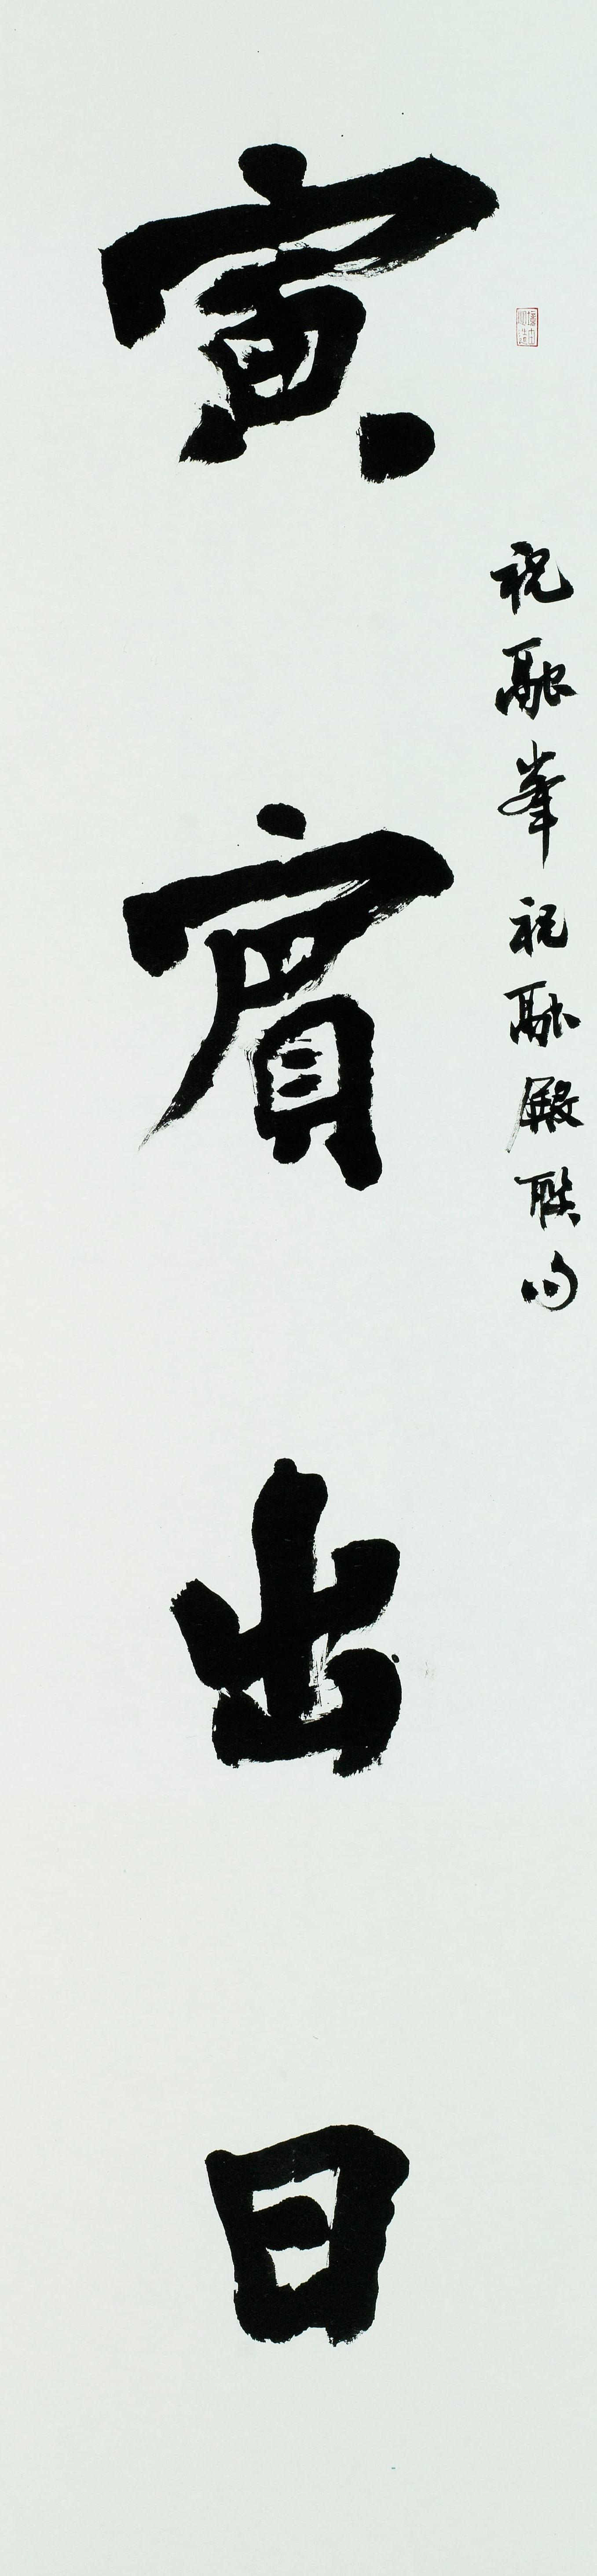 祝融峯祝融殿联句
寅賓出日